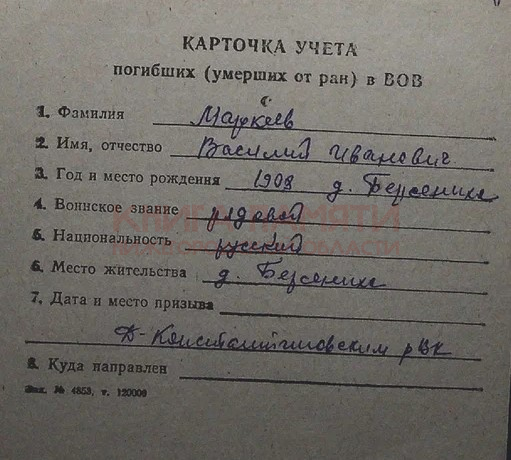 КАРТОЧКА УЧЕТА
погибших (умерших от ран) в ВОВ
1. Фамилия Маркеев
2. Имя, отчество Василий Иванович
3. Год и место рождения 1908 д. Берсениха
4. Воинское звание рядовой
КНИГА ПАМЯТИ
НИЖЕГОРОДСКОЙ ОБЛАСТИ
5. Национальность русский
6. Место жительства д. Берсениха
7. Дата и место призыва
Д-Константиновским РВК
8. Куда направлен
Зак. № 4853, т. 120000